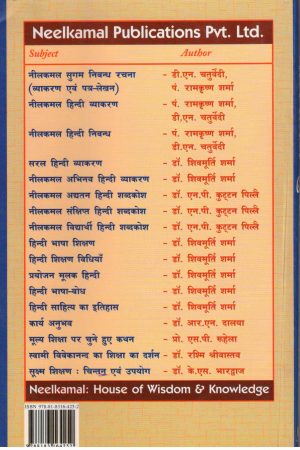 Neelkamal Publications Pvt. Ltd.
Subject Author
नीलकमल सुगम निबन्ध रचना - डी.एन. चतुर्वेदी,
(व्याकरण एवं पत्र-लेखन) पं. रामकृष्ण शर्मा
नीलकमल हिन्दी व्याकरण - पं. रामकृष्ण शर्मा,
डी.एन. चतुर्वेदी
नीलकमल हिन्दी निबन्ध - पं. रामकृष्ण शर्मा,
डी.एन. चतुर्वेदी
सरल हिन्दी व्याकरण - डॉ. शिवमूर्ति शर्मा
नीलकमल अभिनव हिन्दी व्याकरण - डॉ. शिवमूर्ति शर्मा
नीलकमल अद्यतन हिन्दी शब्दकोश - डॉ. एन.पी. कुट्टन पिल्लै
नीलकमल संक्षिप्त हिन्दी शब्दकोश - डॉ. एन.पी. कुट्टन पिल्लै
नीलकमल विद्यार्थी हिन्दी शब्दकोश - डॉ. एन.पी. कुट्टन पिल्लै
हिन्दी भाषा शिक्षण - डॉ. शिवमूर्ति शर्मा
हिन्दी शिक्षण विधियाँ - डॉ. शिवमूर्ति शर्मा
प्रयोजन मूलक हिन्दी - डॉ. शिवमूर्ति शर्मा
हिन्दी भाषा-बोध - डॉ. शिवमूर्ति शर्मा
हिन्दी साहित्य का इतिहास - डॉ. शिवमूर्ति शर्मा
कार्य अनुभव - डॉ. आर.एन. दालया
मूल्य शिक्षा पर चुने हुए कथन - प्रो. एस.पी. रुहेला
स्वामी विवेकानन्द का शिक्षा का दर्शन - डॉ. रश्मि श्रीवास्तव
सूक्ष्म शिक्षण : चिन्तन एवं उपयोग - डॉ. के.एस. भारद्वाज
Neelkamal: House of Wisdom & Knowledge
ISBN 978-81-8316-423-2